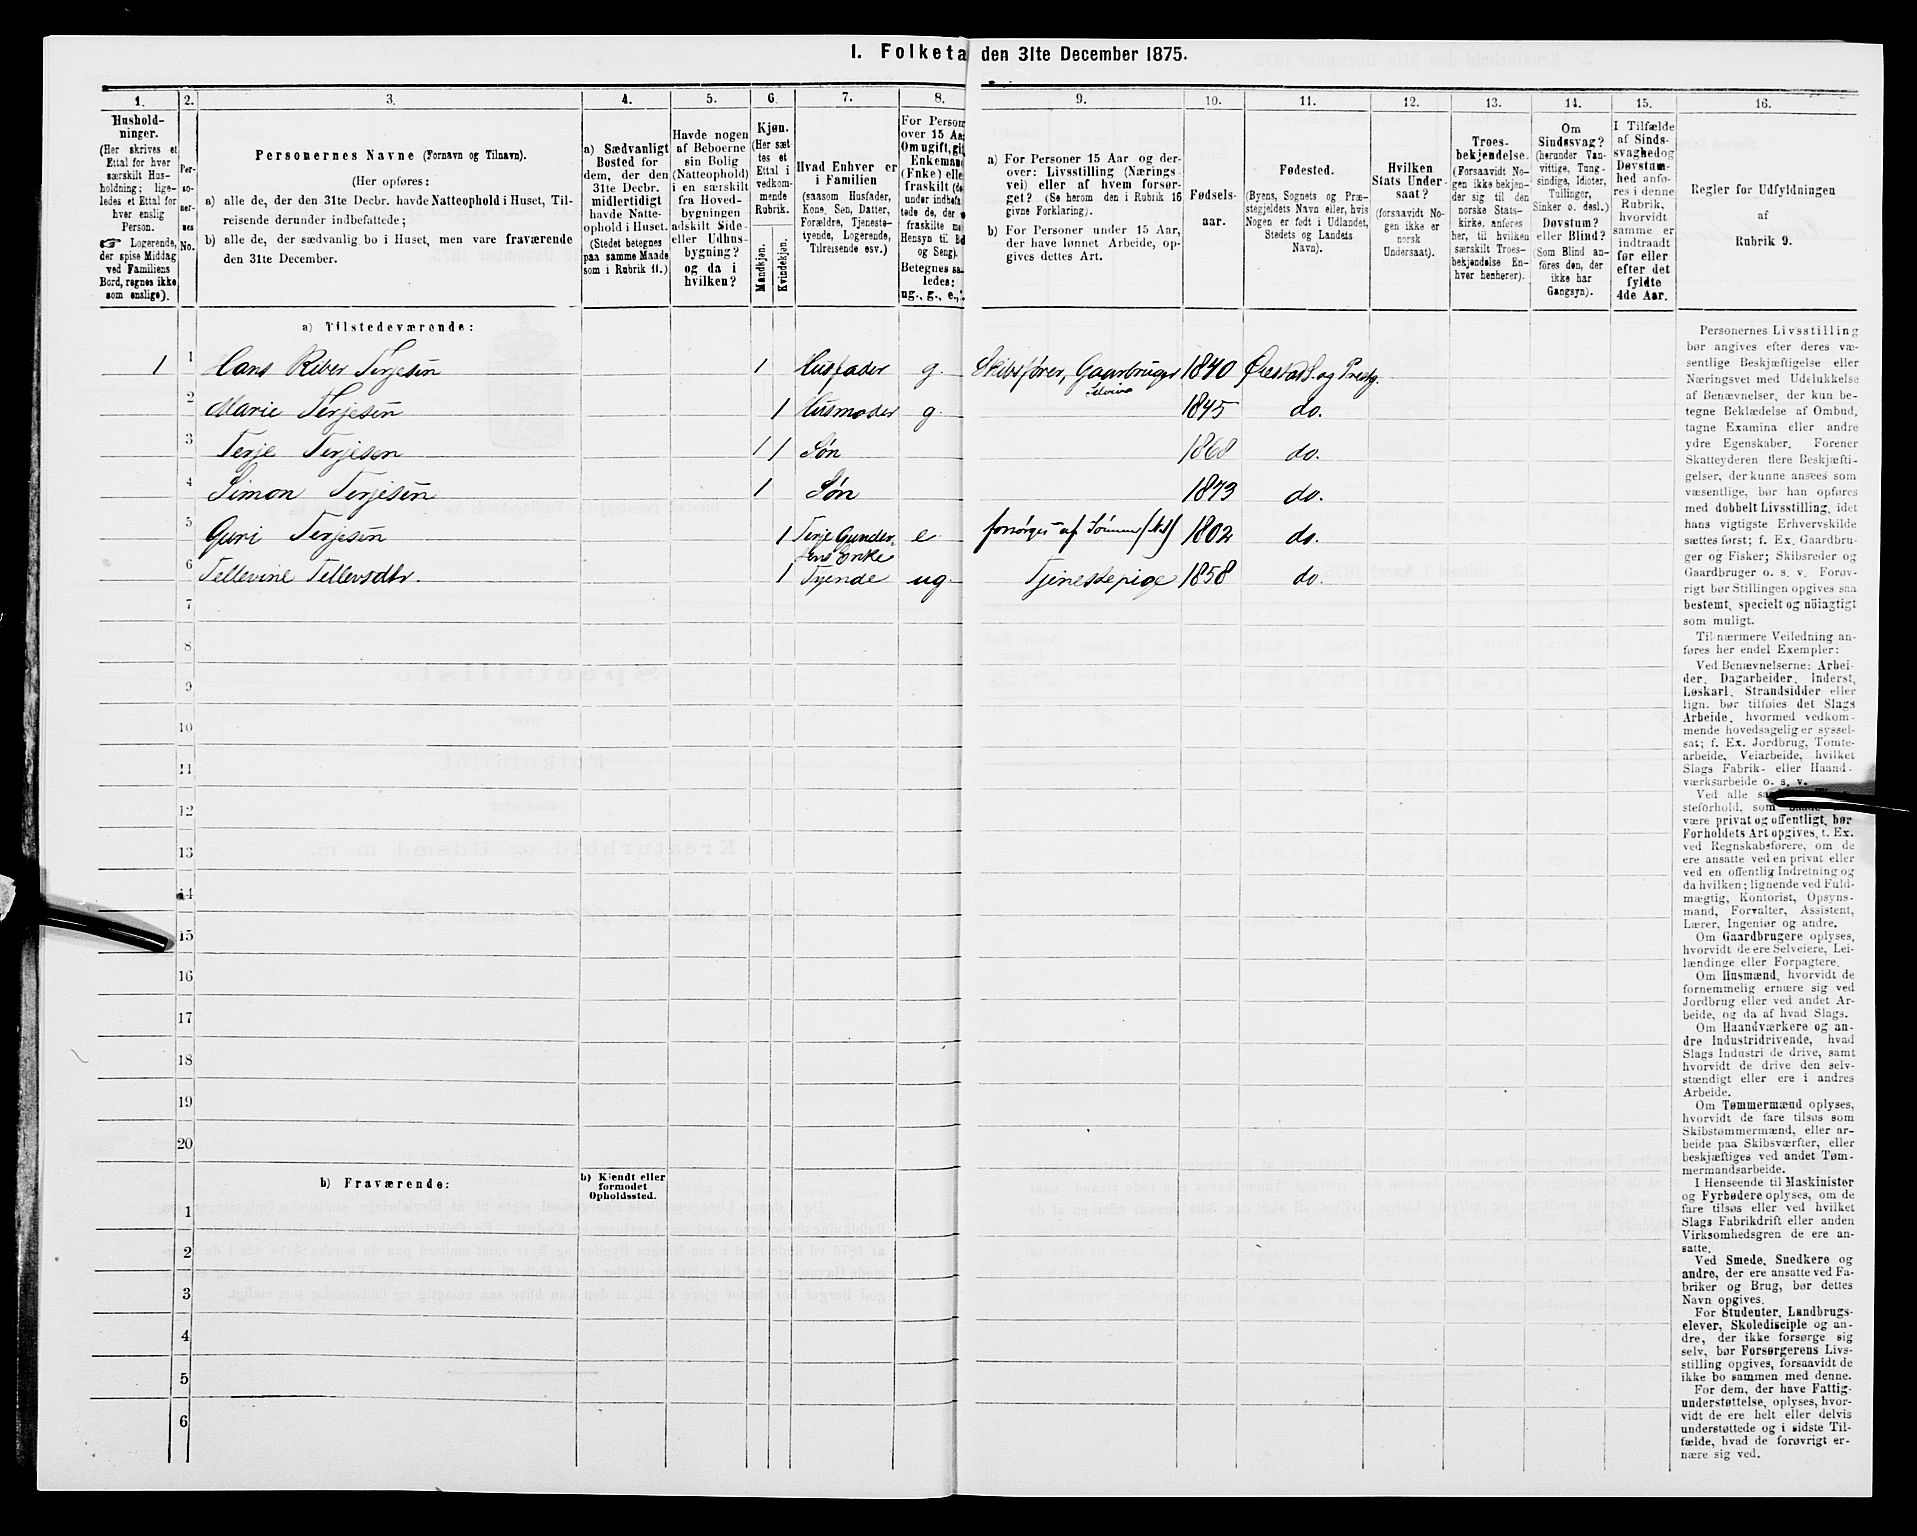 I. Folketa den 31te December 1875.
1.
2.
3.
4.
5.
6.
7.
8.
9.
10.
11.
12.
13.
14.
15.
16.
Hushold-
ninger.
(Her skrives et
Ettal for hver
særskilt Hus-
holdning; lige-
ledes et Ettal for
hver enslig
Person.
Logerende,
der spise Middag
ved Familiens
Bord, regnes ikke
som enslige).
Per-
so-
ner-
nes
No.
Personernes Navne (Fornavn og Tilnavn).
(Her opføres:
a) alle de, der den 31te Decbr. havde Natteophold i Huset, Til-
reisende derunder indbefattede;
b) alle de, der sædvanlig bo i Huset, men vare fraværende
den 31te December.
a) Sædvanligt
Bosted for
dem, der den
31te Decbr.
midlertidigt
havde Natte-
ophold i Huset.
(Stedet betegnes
paa samme Maade
som i Rubrik 11.)
Havde nogen
af Beboerne
sin Bolig
(Natteophold)
i en særskilt
fra Hoved-
bygningen
adskilt Side-
eller Udhus-
bygning?
og da i
hvilken?
Kjøn.
(Her sæt-
tes et
Ettal i
vedkom-
mende
Rubrik.
Mandkjøn.
Kvindekjøn.
Hvad Enhver er
i Familien
(saasom Husfader,
Kone, Søn, Datter,
Forældre, Tjeneste-
tyende, Logerende,
Tilreisende osv.)
For Person
over 15 Aa
Om ugift, gif
Enkeman
(Enke) elle
fraskilt (de
under indbef
tede de, der
fraskilte m
Hensyn til Bo
og Seng).
Betegnes saa
ledes:
ug., g., e.,
a) For Personer 15 Aar og der-
over: Livsstilling (Nærings
vei) eller af hvem forsør-
get? (Se herom den i Rubrik 16
givne Forklaring).
b) For Personer under 15 Aar,
der have lønnet Arbeide, op-
gives dettes Art.
Fødsels-
aar.
Fødested.
(Byens, Sognets og Præ-
stegjeldets Navn eller, hvis
Nogen er født i Udlandet,
Stedets og Landets
Navn).
Hvilken
Stats Under-
saat?
(forsaavidt No-
gen ikke er
norsk
Undersaat).
Troes-
bekjendelse.
(Forsaavidt No-
gen ikke bekjen-
der sig til den
norske Stats-
kirke, anføres
her, til hvilken
særskilt Troes-
bekjendelse En-
hver henhører).
Om
Sindssvag?
(herunder Van-
vittige, Tung-
sindige, Idioter,
Tullinger,
Sinker o. desl.)
Døvstum?
eller Blind?
(Som Blind an-
føres den, der
ikke har
Gangsyn).
I Tilfælde
af Sinds-
svaghed og
Døvstum-
hed anfø-
res i denne
Rubrik,
hvorvidt
samme er
indtraadt
før eller
efter det
fyldte
4de Aar.
Regler for Udfyldningen
af
Rubrik 9.
a) Tilstedeværende:
1 1 Hans Riber Terjesen 1 Husfader g. Skibsfører, Gaardbruger Selveier 1840 Øiestad S. og Prestg.
2 Marie Terjesen 1 Husmoder g. 1845 do.
3 Terje Terjesen 1 1 Søn 1868 do.
4 Simon Terjesen 1 Søn 1873 do.
5 Guri Terjesen 1 Terje Gunder- e. forsørges af Sønnen (N1) 1802 do.
sens Enke
6 Tellevine Tellevsdtr. 1 Tyende ug. Tjenestepige 1858 do.
7
8
9
10
11
12
13
14
15
16
17
18
19
20
b) Fraværende:
b) Kjendt eller
formodet
Opholdssted.
1
2
3
4
5
6
Personernes Livsstilling
bør angives efter deres væ-
sentlige Beskjæftigelse eller
Næringsvei med Udelukkelse
af Benævnelser, der kun be-
tegne Beklædelse af Ombud,
tagne Examina eller andre
ydre Egenskaber. Forener
Skatteyderen flere Beskjæfti-
gelser, der kunne ansees som
væsentlige, bør han opføres
med dobbelt Livsstilling, idet
hans vigtigste Erhvervskilde
sættes først; f. Ex. Gaardbru-
ger og Fisker; Skibsreder og
Gaardbruger o. s. v. Forøv-
rigt bør Stillingen opgives saa
bestemt, specielt og nöiagtigt
som muligt.
Til nærmere Veiledning an-
føres her endel Exempler:
Ved Benævnelserne: Arbei-
der, Dagarbeider, Inderst,
Løskarl, Strandsidder eller
lign. bør tilføies det Slags
Arbeide, hvormed vedkom-
mende hovedsagelig er syssel-
sat; f. Ex. Jordbrug, Tomte-
arbeide, Veiarbeide, hvilket
Slags Fabrik- eller Haand-
værksarbeide o. s. v.
Ved alle
steforhold, som
være privat og offentligt, bør
Forholdets Art opgives, t. Ex.
ved Regnskabsførere, om de
ere ansatte ved en privat eller
ved en offentlig Indretning og
da hvilken; lignende ved Fuld-
mægtig, Kontorist, Opsyns-
mand, Forvalter, Assistent,
Lærer, Ingeniør og andre.
Om Gaardbrugere oplyses,
hvorvidt de ere Selveiere, Lei-
lændinge eller Forpagtere.
Om Husmænd, hvorvidt de
fornemmelig ernære sig ved
Jordbrug eller ved andet Ar-
beide, og da af hvad Slags.
Om Haandværkere og an-
dre Industridrivende, hvad
Slags Industri de drive, samt
hvorvidt de drive den selv-
stændigt eller ere i andres
Arbeide.
Om Tømmermænd oplyses,
hvorvidt de fare tilsøs som
Skibstømmermænd, eller ar-
beide paa Skibsværfter, eller
beskjæftiges ved andet Tøm-
mermandsarbeide.
I Henseende til Maskinister
og Fyrbødere oplyses, om de
fare tilsøs eller ved hvilket
Slags Fabrikdrift eller anden
Virksomhedsgren de ere an-
satte.
Ved Smede, Snedkere og
andre, der ere ansatte ved Fa-
briker og Brug, bør dettes
Navn opgives.
For Studenter, Landbrugs-
elever, Skoledisciple og an-
dre, der ikke forsørge sig
selv, bør Forsørgerens Livs-
stilling opgives, forsaavidt de
ikke bo sammen med denne.
For dem, der have Fattig-
understøttelse, oplyses, hvor-
vidt de ere helt eller delvis
understøttede og i sidste Til-
fælde, hvad de forøvrigt er-
nære sig ved.